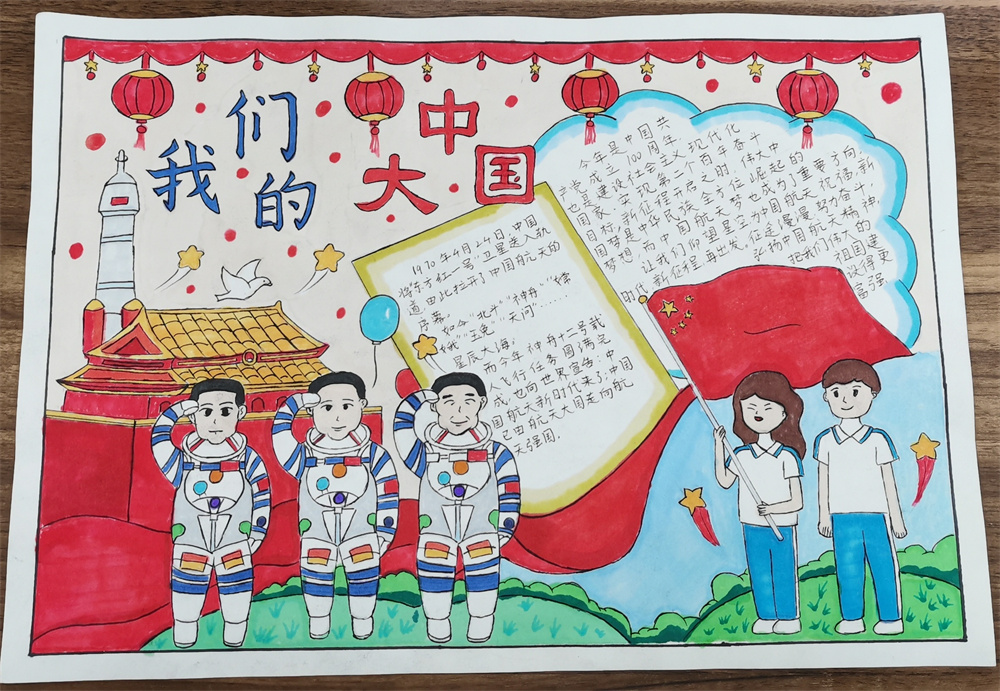 我们的
大中国
1970年4月24日中国
将东方红一号卫星送入轨
道,由此拉开了中国航天的
序幕。
如今"北斗""神舟""嫦
娥""玉兔""天问"……
星辰大海!
而今年神舟十二号载
人飞行任务圆满完
成,也向世界宣告:中
国航天新时代来了,中国
已由航天大国走向航
天强国.
今年是中国共
产党成立100周年,
也是建设社会主义现代化
国家、实现第二个百年奋斗
目标,新征程开启之时,伟大中
国梦是中华民族全方位崛起的
梦想,而中国航天梦也成为了重要方向,
让我们仰望星空为中国航天祝福,新
时代新征程再出发,征途漫漫,努力奋斗,
弘扬中国航天精神,
把我们伟大的
祖国建
设得更
富强.